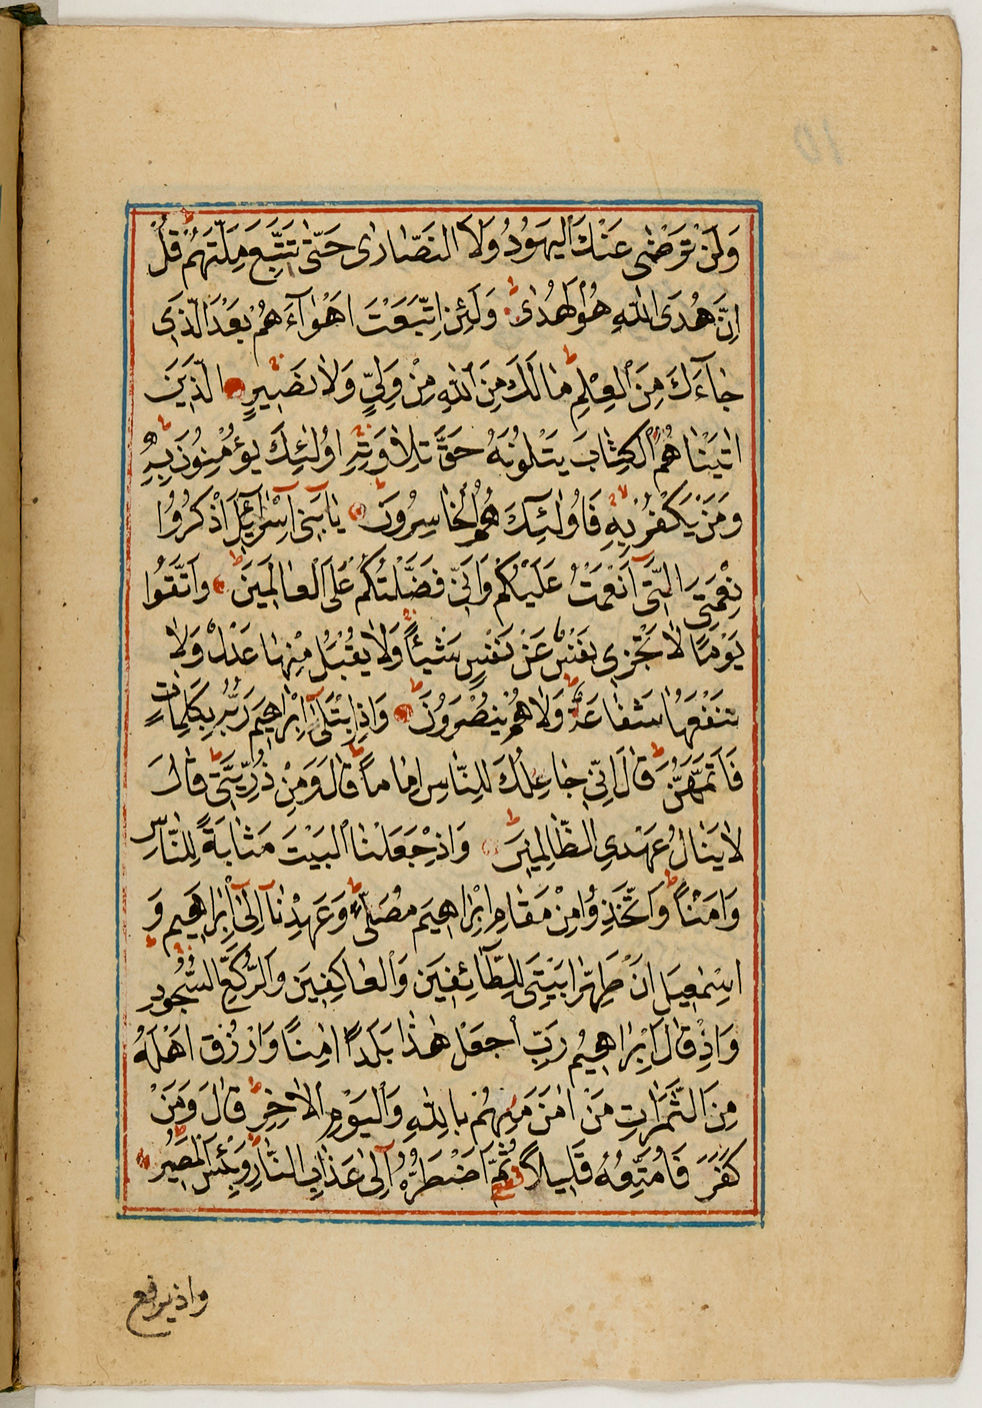 وَلَنْ تَرْضٰى عَنْكَ الْيَهُودُ وَلَا النَّصَارٰى حَتّٰى تَتَّبِعَ مِلَّتَهُمْ قُلْ
اِنَّ هُدَى اللّٰهِ هُوَ الْهُدٰى وَلَئِنِ اتَّبَعْتَ اَهْوَآءَهُمْ بَعْدَ الَّذِى
جَآءَكَ مِنَ الْعِلْمِ مَا لَكَ مِنَ اللّٰهِ مِنْ وَلِيٍّ وَلَا نَصِيرٍ الَّذِينَ
اٰتَيْنَاهُمُ الْكِتَابَ يَتْلُونَهُ حَقَّ تِلَاوَتِهِ اُولٰئِكَ يُؤْمِنُونَ بِهِ
وَمَنْ يَكْفُرْ بِهِ فَاُولٰئِكَ هُمُ الْخَاسِرُونَ يَا بَنِى اِسْرَآئِلَ اذْكُرُوا
نِعْمَتِىَ الَّتِى اَنْعَمْتُ عَلَيْكُمْ وَاَنِّى فَضَّلْتُكُمْ عَلَى الْعَالَمِينَ وَاتَّقُوا
يَوْمًا لَا تَجْزِى نَفْسٌ عَنْ نَفْسٍ شَيْئًا وَلَا يُقْبَلُ مِنْهَا عَدْلٌ وَلَا
تَنْفَعُهَا شَفَاعَةٌ وَلَا هُمْ يُنْصَرُونَ وَاِذِ ابْتَلٰى اِبْرَاهِيمَ رَبُّهُ بِكَلِمَاتٍ
فَاَتَمَّهُنَّ قَالَ اِنِّى جَاعِلُكَ لِلنَّاسِ اِمَامًا قَالَ وَمِنْ ذُرِّيَّتِى قَالَ
لَا يَنَالُ عَهْدِى الظَّالِمِينَ وَاِذْ جَعَلْنَا الْبَيْتَ مَثَابَةً لِلنَّاسِ
وَاَمْنًا وَاتَّخِذُوا مِنْ مَقَامِ اِبْرَاهِيمَ مُصَلًّى وَعَهِدْنَا اِلٰى اِبْرَاهِيمَ وَ
اِسْمٰعِيلَ اَنْ طَهِّرَا بَيْتِىَ لِلطَّائِفِينَ وَالْعَاكِفِينَ وَالرُّكَّعِ السُّجُودِ
وَاِذْ قَالَ اِبْرَاهِيمُ رَبِّ اجْعَلْ هٰذَا بَلَدًا اٰمِنًا وَارْزُقْ اَهْلَهُ
مِنَ الثَّمَرَاتِ مَنْ اٰمَنَ مِنْهُمْ بِاللّٰهِ وَالْيَوْمِ الْاٰخِرِ قَالَ وَمَنْ
كَفَرَ فَاُمَتِّعُهُ قَلِيلًا ثُمَّ اَضْطَرُّهُ اِلٰى عَذَابِ النَّارِ وَبِئْسَ الْمَصِيرُ
واذ يرفع